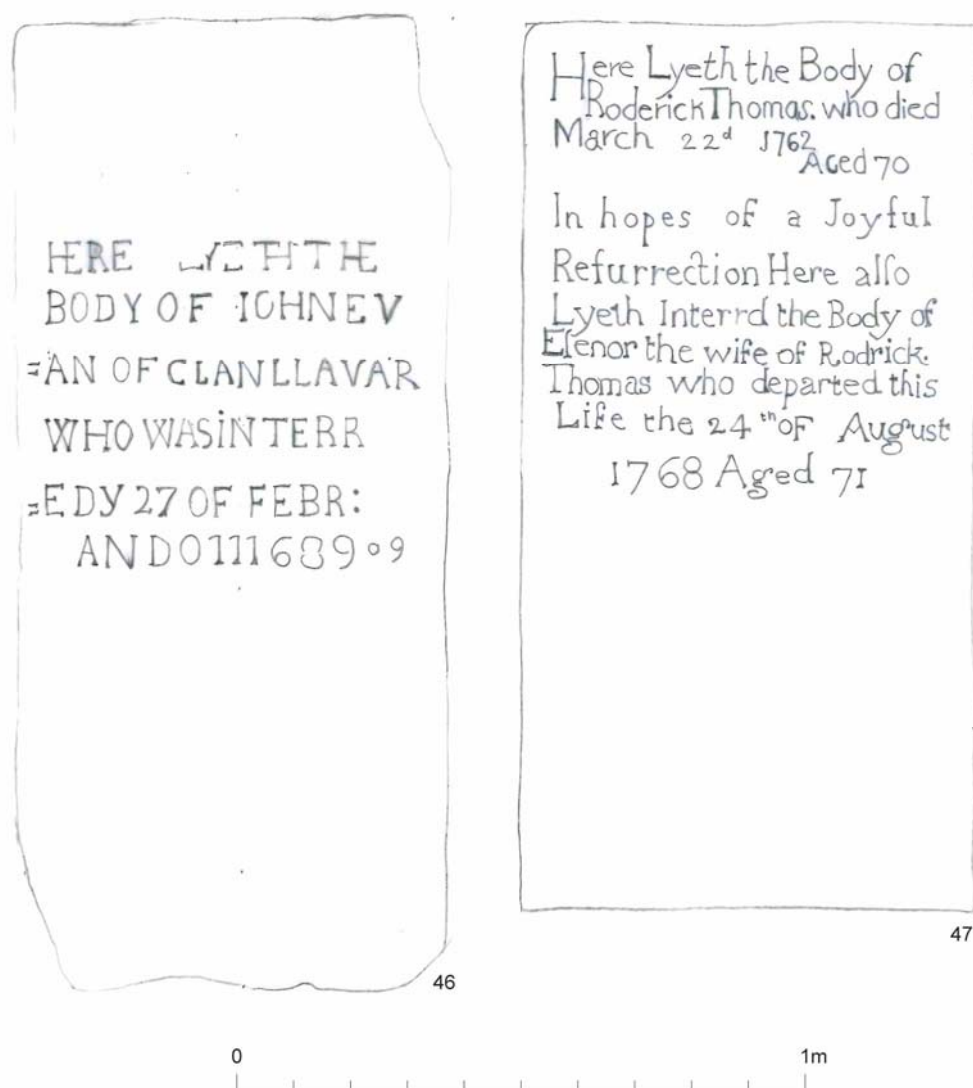 HERE LYETH THE
BODY OF IOHN EV
=AN OF CLANLLAVAR
WHO WAS iNTERR
=ED Y 27 OF FEBR:
ANDO111689 09
46
Here Lyeth the Body of
Roderick Thomas. who died
March 22d 1762
Aced 70
In hopes of a Joyful
Reſurrection Here alſo
Lyeth Interrd the Body of
Elenor the wife of Rodrick.
Thomas who departed this
Life the 24th oF August
1768 Aged 71
47
0 1m